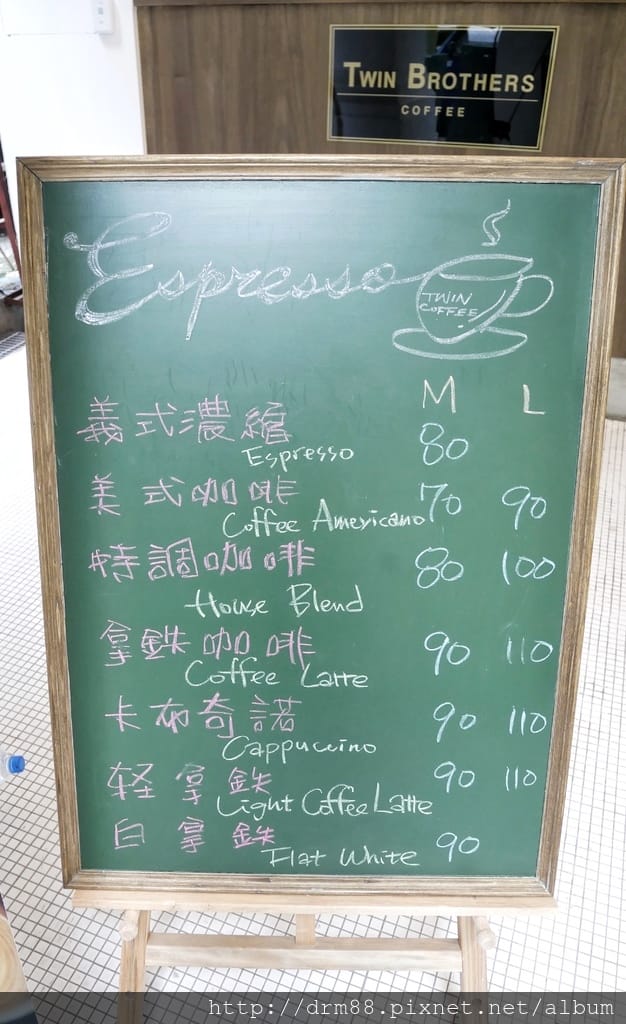 TWIN BROTHERS
COFFEE
Espresso
TWIN
COFFEE
M L
義式濃縮 80
Espresso
美式咖啡 70 90
Coffee Americano
特調咖啡 80 100
House Blend
拿鉄咖啡 90 110
Coffee Latte
卡布奇諾 90 110
Cappuccino
轻拿鉄 90 110
Light Coffee Latte
白拿鉄 90
Flat White
http://drm88.pixnet.net/album